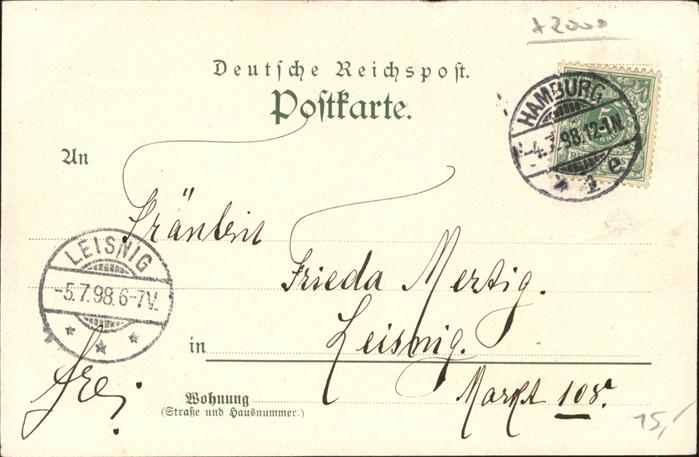 A2000
Deutsche Reichspost.
Postkarte.
HAMBURG
-4.7.98.12-1N.
* 1 e
An
Fräulein
Frieda Mertig.
LEISNIG
-5.7.98.6-7V.
* * *
in Leisnig.
frei
Wohnung Markt 108a
(Straße und Hausnummer.)
15,-